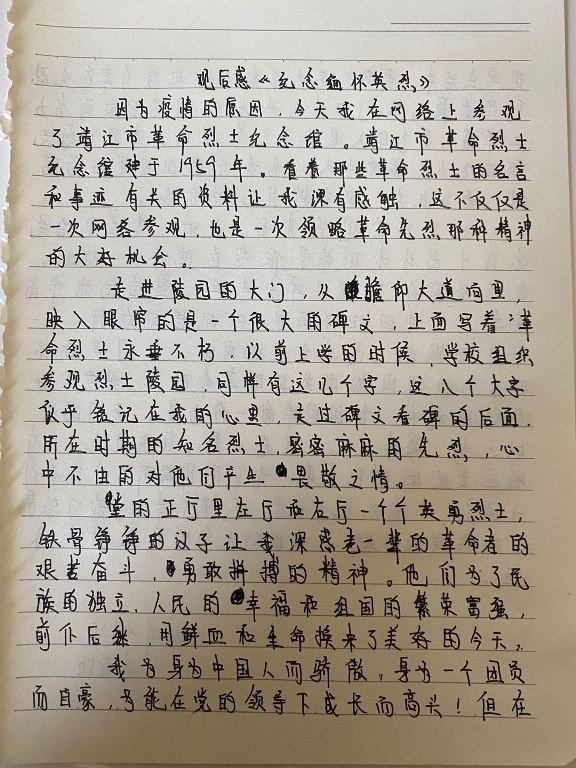 观后感《纪念缅怀英烈》
因为疫情的原因，今天我在网络上参观
了靖江市革命烈士纪念馆。靖江市革命烈士
纪念馆建于1959年。看着那些革命烈士的名言
和事迹有关的资料让我深有感触，这不仅仅是
一次网络参观，也是一次领略革命先烈那种精神
的大好机会。
走进陵园的大门，从瞻仰大道向里，
映入眼帘的是一个很大的碑文，上面写着：革
命烈士永垂不朽。以前上学的时候，学校组织
参观烈士陵园，同样有这几个字，这八个大字
似乎铭记在我的心里，走过碑文看碑的后面，
所在时期的知名烈士，密密麻麻的先烈，心
中不由的对他们产生畏敬之情。
堂的正厅里左厅和右厅一个个英勇烈士，
铁骨铮铮的汉子让我深感老一辈的革命者的
艰苦奋斗，勇敢拼搏的精神。他们为了民
族的独立，人民的幸福和祖国的繁荣富强，
前仆后继，用鲜血和生命换来了美好的今天。
我为身为中国人而骄傲，身为一个团员
而自豪，为能在党的领导下成长而高兴！但在